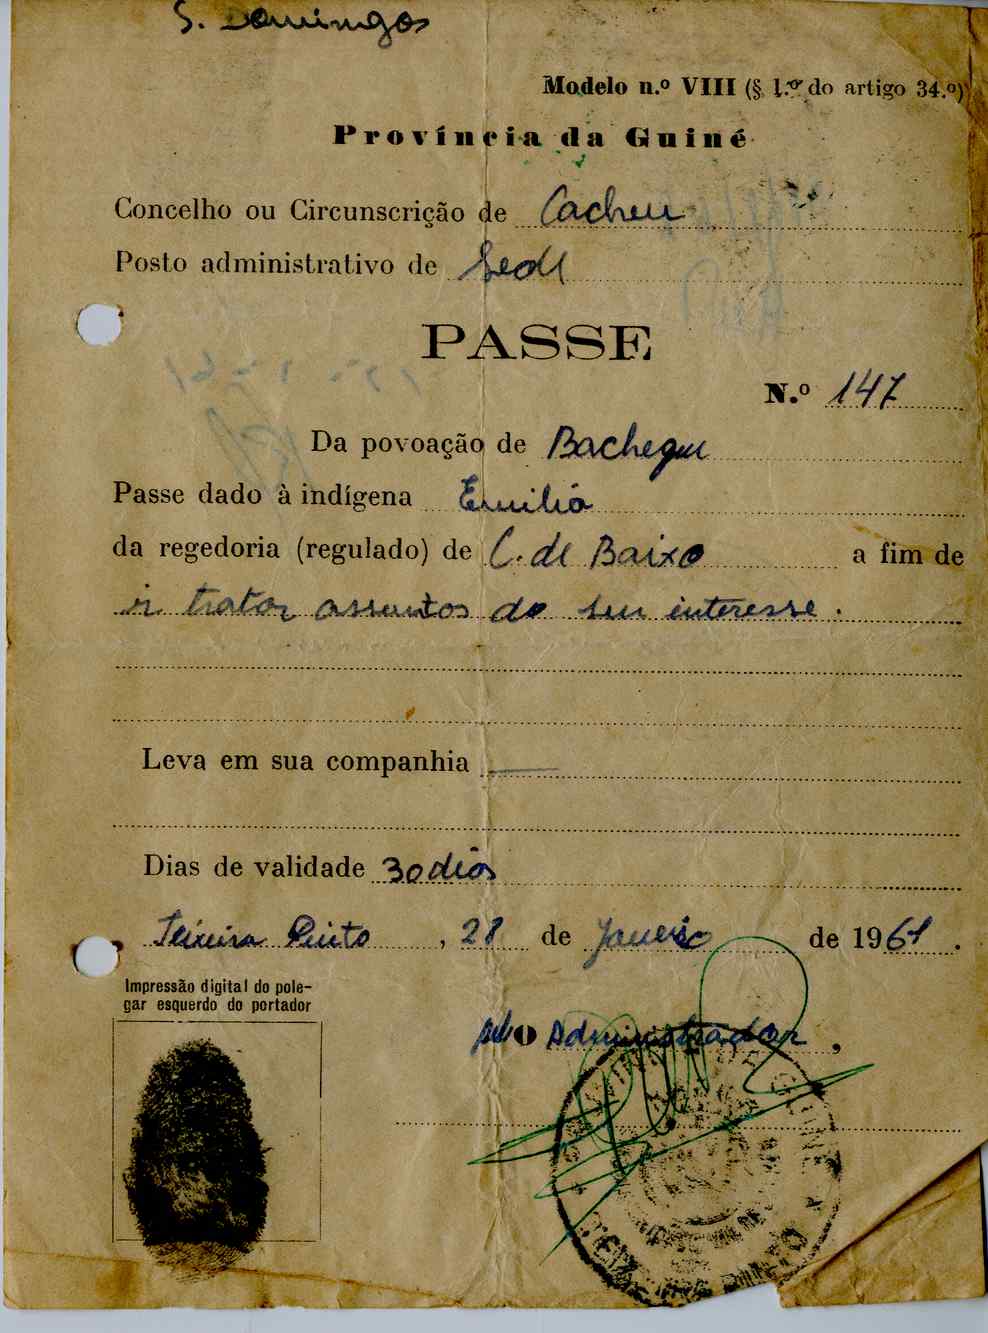 S. Domingos
Modelo n.º VIII (§ 1.º do artigo 34.º)
Província da Guiné
Concelho ou Circunscrição de Cacheu
Posto administrativo de Sede
PASSE
N.º 147
Da povoação de Bachegue
Passe dado à indígena Emilia
da regedoria (regulado) de C. de Baixo a fim de
ir tratar assuntos do seu interesse.
Leva em sua companhia
Dias de validade 30 dias
Teixeira Pinto, 28 de Janeiro de 1961.
Impressão digital do pole-
gar esquerdo do portador
pelo O Administrador,
TEIXEIRA PINTO